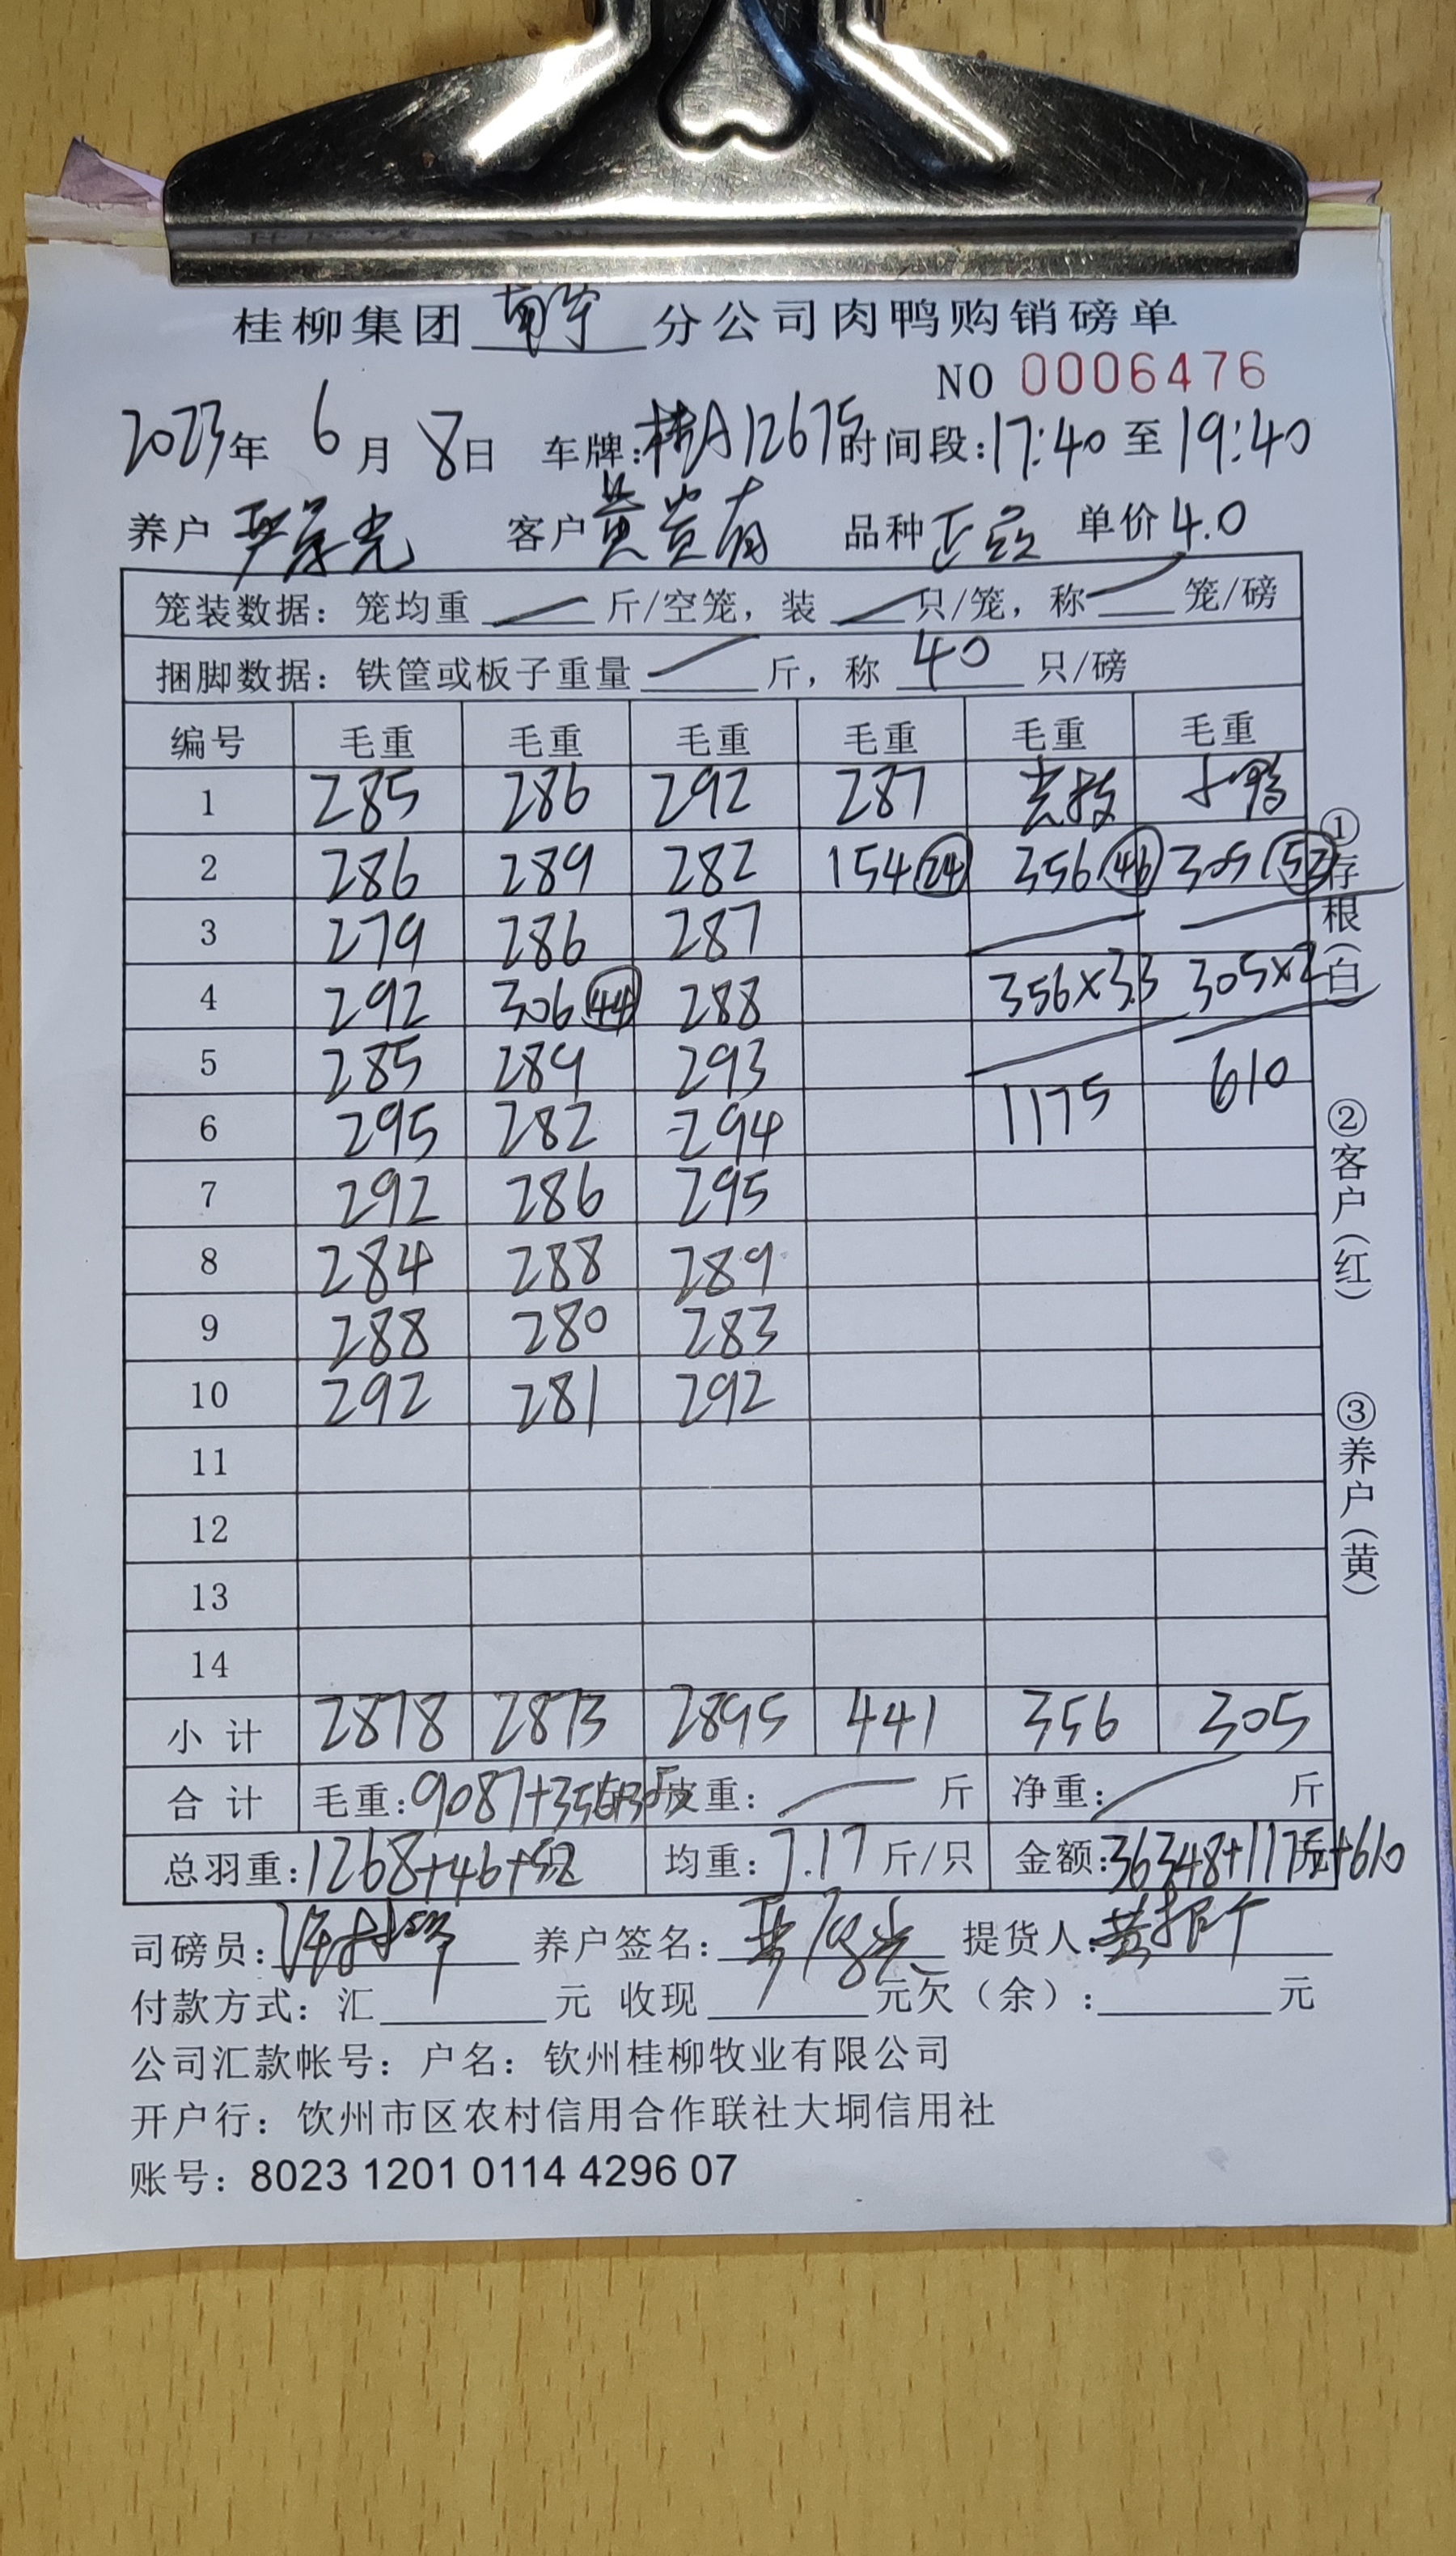 桂柳集团 南宁 分公司肉鸭购销磅单
NO 0006476
2023年 6月 8日 车牌:桂A12675 时间段:17:40 至 19:40
养户 光 客户 黄贵有 品种 单价 4.0
笼装数据: 笼均重 斤/空笼, 装 只/笼, 称 笼/磅
捆脚数据: 铁筐或板子重量 斤, 称 40 只/磅
编号 毛重 毛重 毛重 毛重 毛重 毛重
1 285 286 292 287 小鸭
2 286 289 282 154 24 356 46 305
3 279 286 287
4 292 306 44 288 356×3.3 305×2
5 285 289 293
6 295 282 294 1175 610
7 292 286 295
8 284 288 289
9 288 280 283
10 292 281 292
11
12
13
14
小计 2878 2873 2895 441 356 305
合计 毛重:9087+356+305 皮重: 斤 净重: 斤
总羽重:1268+46+52 均重:7.17斤/只 金额:36348+1175元+610
司磅员: 养户签名: 提货人:
付款方式: 汇 元 收现 元欠(余): 元
公司汇款帐号: 户名: 钦州桂柳牧业有限公司
开户行: 钦州市区农村信用合作联社大垌信用社
账号: 8023 1201 0114 4296 07
①存根(白)
②客户(红)
③养户(黄)